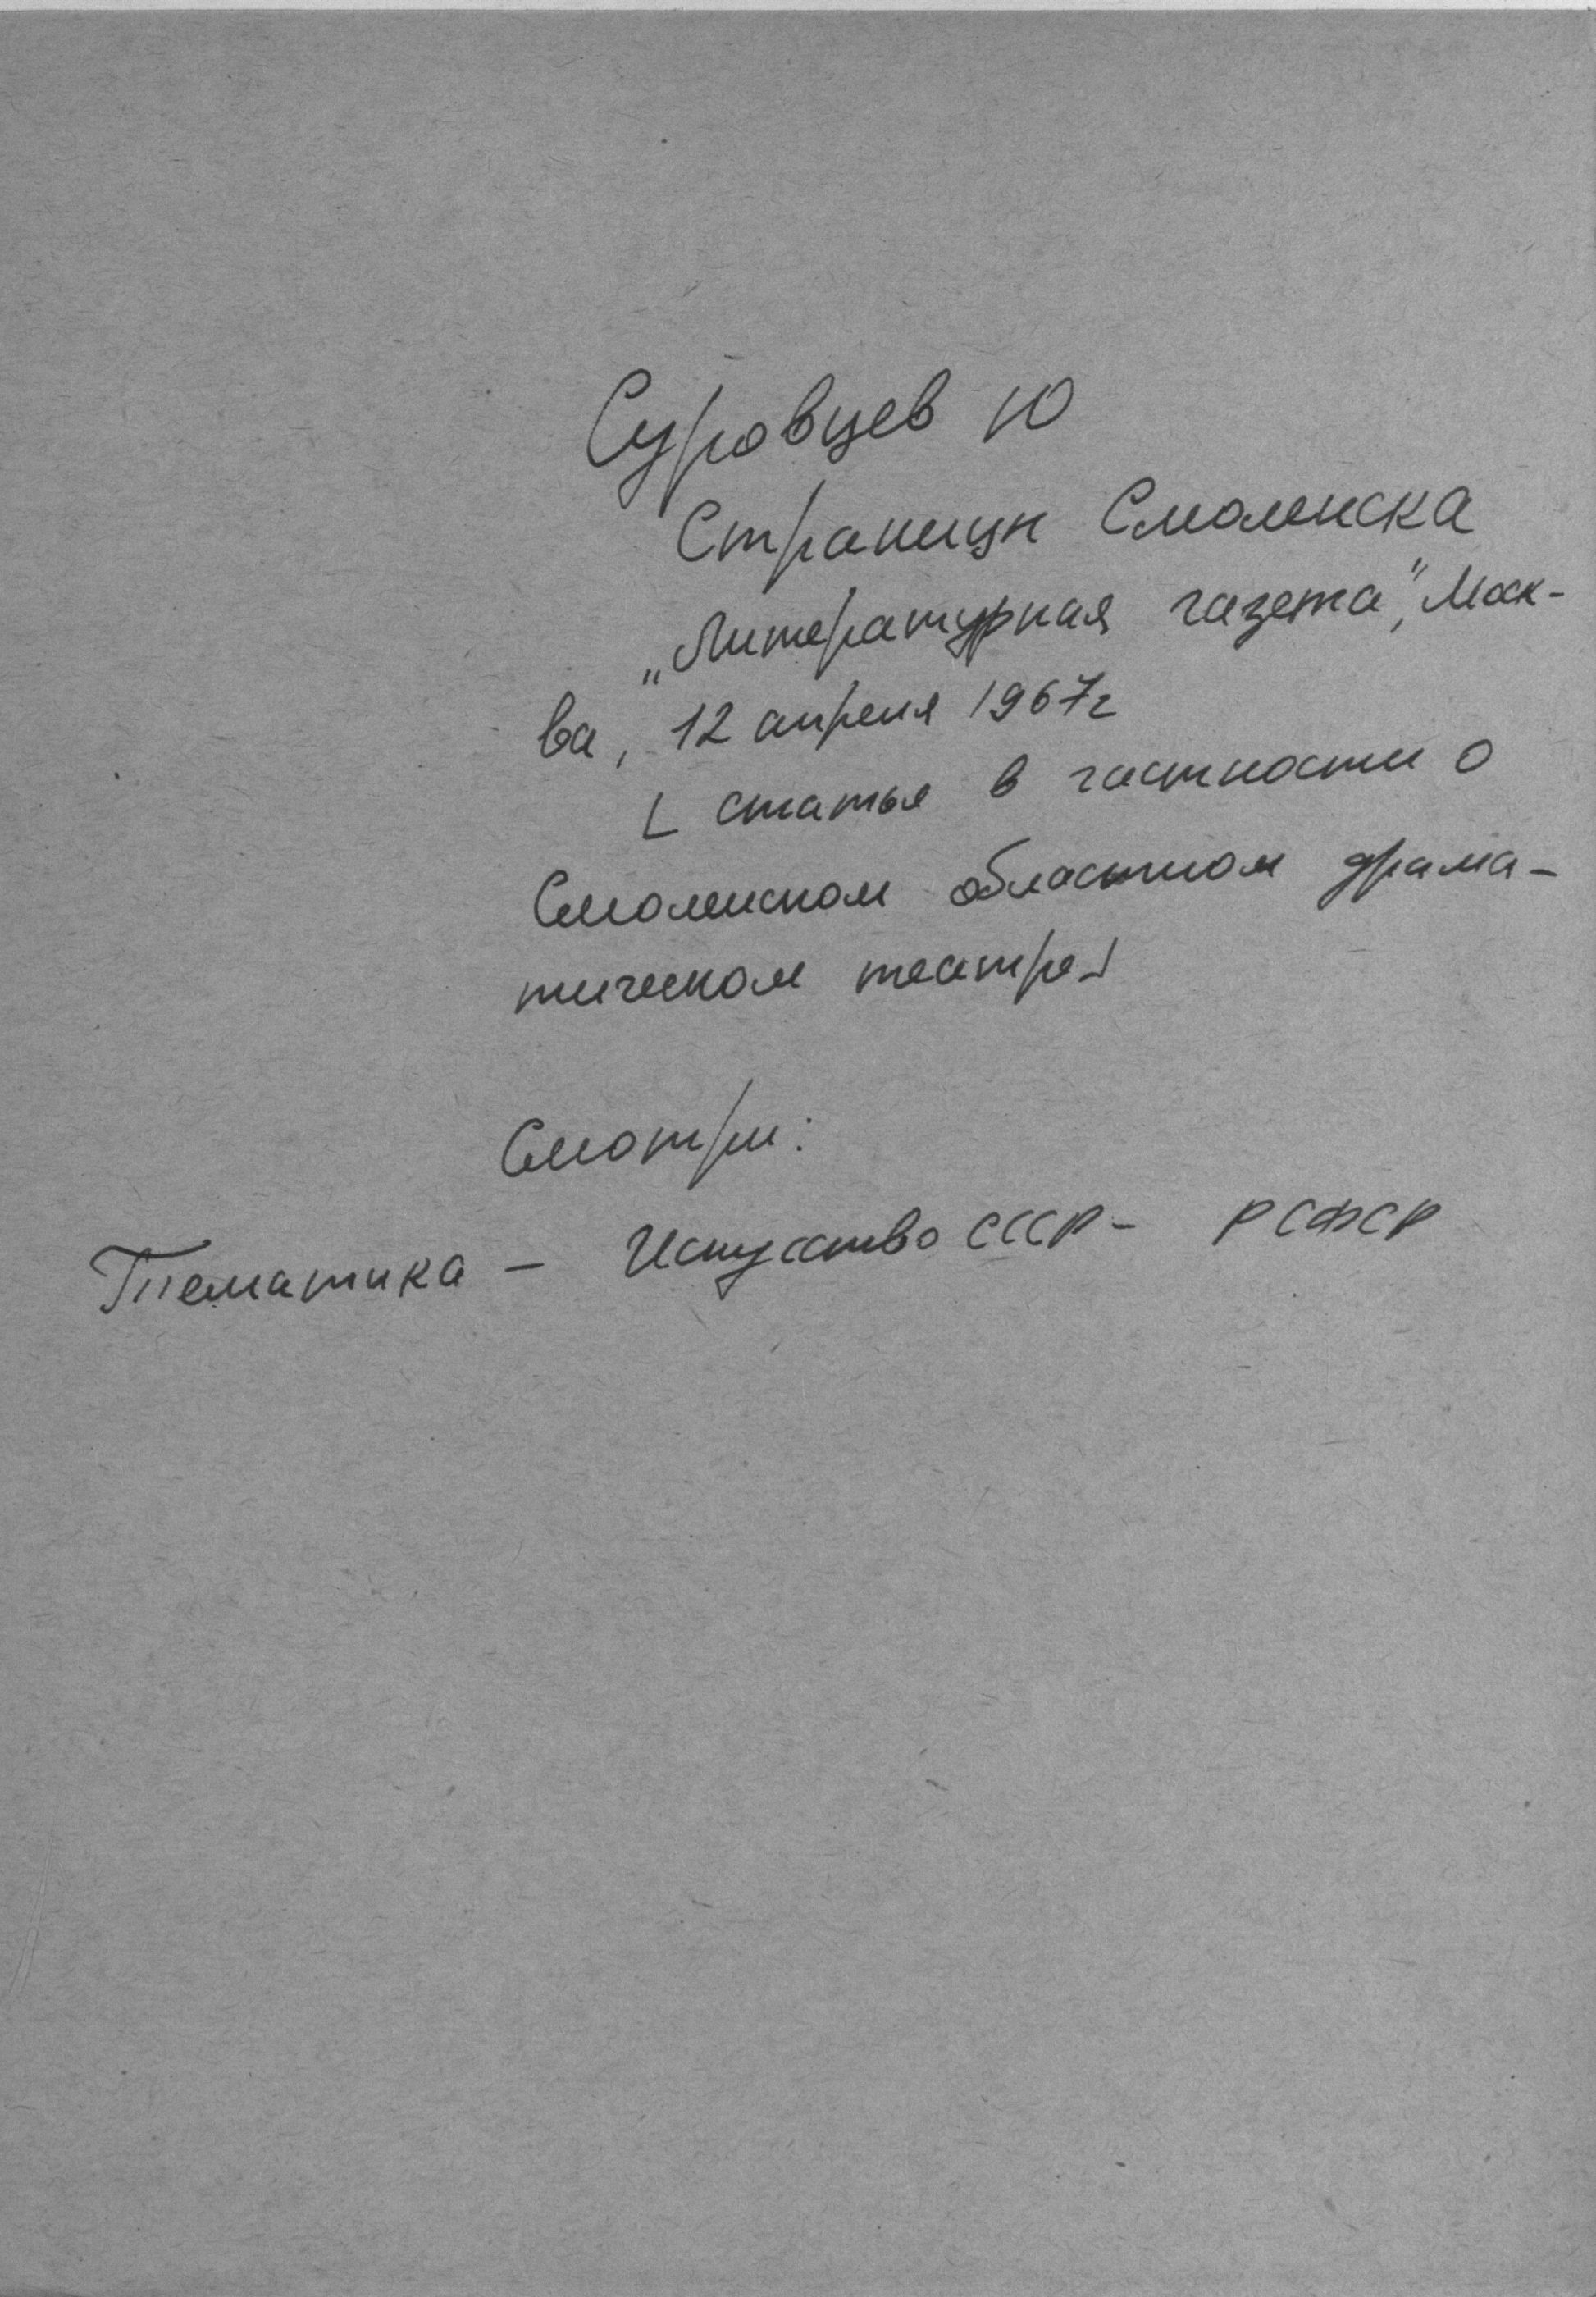 Суровцев Ю
Страницы Смоленска
„Литературная газета", Моск-
ва, 12 апреля 1967г
[ статья в частности о
Смоленском областном драма-
тическом театре]
Смотри:
Тематика - Искусство СССР - РСФСР